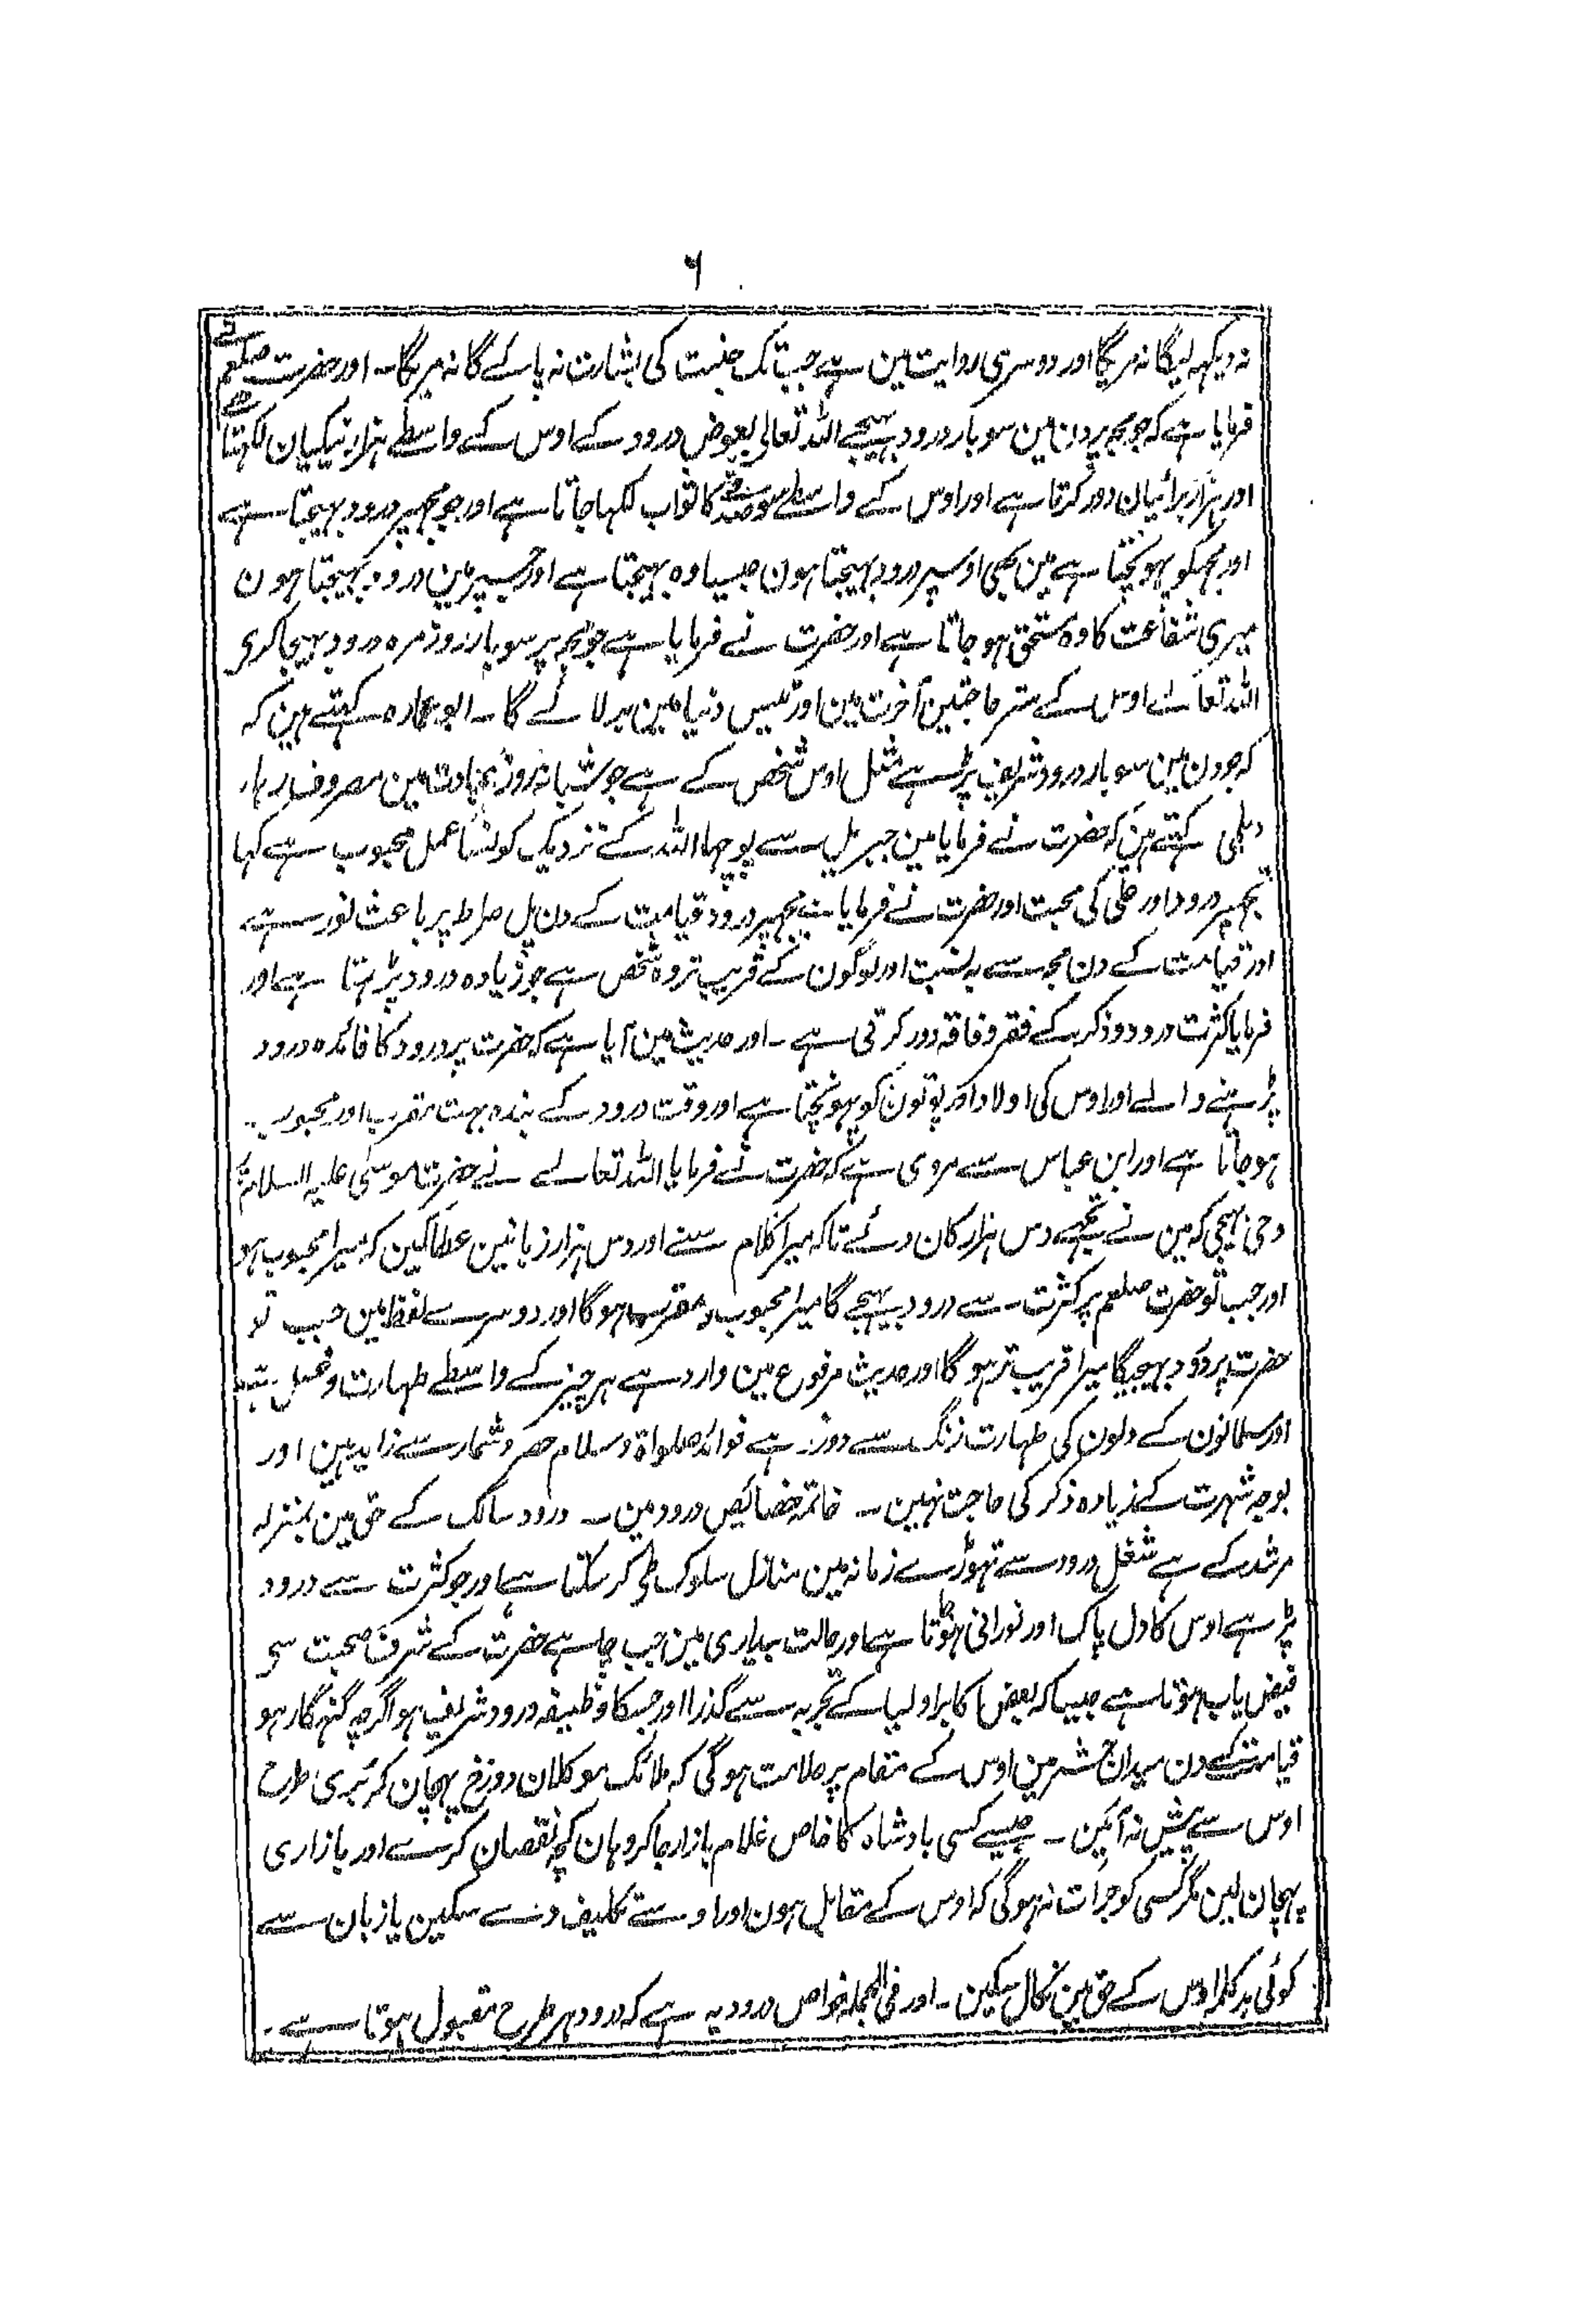 ۶
نہ دیکہہ لیگا نہ مریگا اور دوسری روایت مین ہے جب تک جنت کی بشارت نہ پائے گا نہ مریگا۔ اور حضرت صلعم نے
فرمایا ہے کہ جو مجہ پر دن مین سو بار درود بہیجے اللہ تعالی بعوض درود کے اوس کے واسطے ہزار نیکیان لکہتا ہے
اور ہزار برائیان دور کرتا ہے اور اوس کے واسطے سو صدقے کا ثواب لکہا جاتا ہے اور جو مجہپر درود بہیجتا ہے
اور مجہکو پہونچتا ہے مین بھی اوسپر درود بہیجتا ہون جیسا وہ بہیجتا ہے اور جسپر مین درود بہیجتا ہون
میری شفاعت کا وہ مستحق ہو جاتا ہے اور حضرت نے فرمایا ہے جو مجہ پر سو بار روز مرہ درود بہیجا کری
اللہ تعالے اوس کے ستر حاجتین آخرت مین اور تیس دنیا مین بر لائے گا۔ ابو عمارہ کہتے ہین کہ
کہ جو دن مین سو بار درود شریف پڑہے مثل اوس شخص کے ہے جو شبانہ روز عبادت مین مصروف رہا۔
دیلمی کہتے ہین کہ حضرت نے فرمایا مین جبریل سے پوچہا اللہ کے نزدیک کونسا عمل محبوب ہے کہا
تجہپر درود اور علی کی محبت اور حضرت نے فرمایا ہے مجہپر درود قیامت کے دن پل صراط پر باعث نور ہے
اور قیامت کے دن مجہ سے بہ نسبت اور لوگون کے قریب تر وہ شخص ہے جو زیادہ درود پڑہتا ہے اور
فرمایا کثرت درود و ذکر کے فقر و فاقہ دور کرتی ہے۔ اور حدیث مین آیا ہے کہ حضرت پر درود کا فائدہ درود
پڑہنے والے اور اوس کی اولاد اور پوتون کو پہونچتا ہے اور وقت درود کے بندہ بہت مقرب اور محبوب
ہو جاتا ہے اور ابن عباس سے مروی ہے کہ حضرت نے فرمایا اللہ تعالے نے حضرت موسی علیہ السلام پر
وحی بہیجی کہ مین نے تجہے دس ہزار کان دئے تاکہ میرا کلام سنے اور دس ہزار زبانین عطا کین کہ میرا محبوب ہو
اور جب تو حضرت صلعم پر کثرت سے درود بہیجے گا میرا محبوب و مقرب ہوگا اور دوسرے لفظ مین جب تو
حضرت پر درود بہیجیگا میرا قریب تر ہوگا اور حدیث مرفوع مین وارد ہے ہر چیز کے واسطے طہارت و غسل ہے
اور مسلمانون کے دلون کی طہارت زنگ سے درود ہے فوائد صلواة و سلام حصر و شمار سے زاید ہین اور
بوجہ شہرت کے زیادہ ذکر کی حاجت نہین۔ خاتمہ خصائص درود مین۔ درود سالک کے حق مین بمنزلہ
مرشد کے ہے شغل درود سے تہوڑے زمانہ مین منازل سلوک طی کر سکتا ہے اور جو کثرت سے درود
پڑہے اوس کا دل پاک اور نورانی ہوتا ہے اور حالت بیداری مین جب چاہے حضرت کے شرف صحبت سی
فیض یاب ہوتا ہے جیسا کہ بعض اکابر اولیا کے تجربہ سے گذرا اور جسکا وظیفہ درود شریف ہو اگرچہ گنہگار ہو
قیامت کے دن میدان حشر مین اوس کے مقام پر علامت ہوگی کہ ملائک موکلان دوزخ پہچان کر بری طرح
اوس سے پیش نہ آئین۔ جیسے کسی بادشاہ کا خاص غلام بازار جا کر وہان کچہ نقصان کرے اور بازاری
پہچان لین مگر کسی کو جرات نہ ہوگی کہ اوس کے مقابل ہون اور اوسے تکلیف دے سکین یا زبان سے
کوئی بد کلمہ اوس کے حق مین نکال سکین۔ اور فی الجملہ خواص درود یہ ہے کہ درود ہر طرح مقبول ہوتا ہے۔